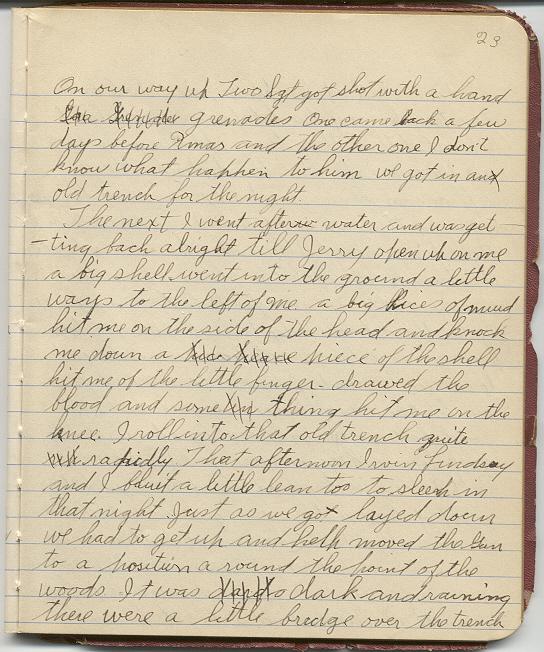 23
On our way up Two Sgt got shot with a hand
grenades One came back a few
days before Xmas and the other one I don't
know what happen to him we got in an
old trench for the night.
The next I went after water and was get
-ting back alright till Jerry open up on me
a big shell went into the ground a little
ways to the left of me a big pices of mud
hit me on the side of the head and knock
me down a piece of the shell
hit me of the little finger - drawed the
blood and some thing hit me on the
knee. I roll into that old trench quite
rapidly That afternoon Irvin Lindsay
and I built a little lean too to sleep in
that night Just as we got layed down
we had to get up and help moved the Gun
to a position a round the point of the
woods. It was so dark and raining
there were a little bredge over the trench